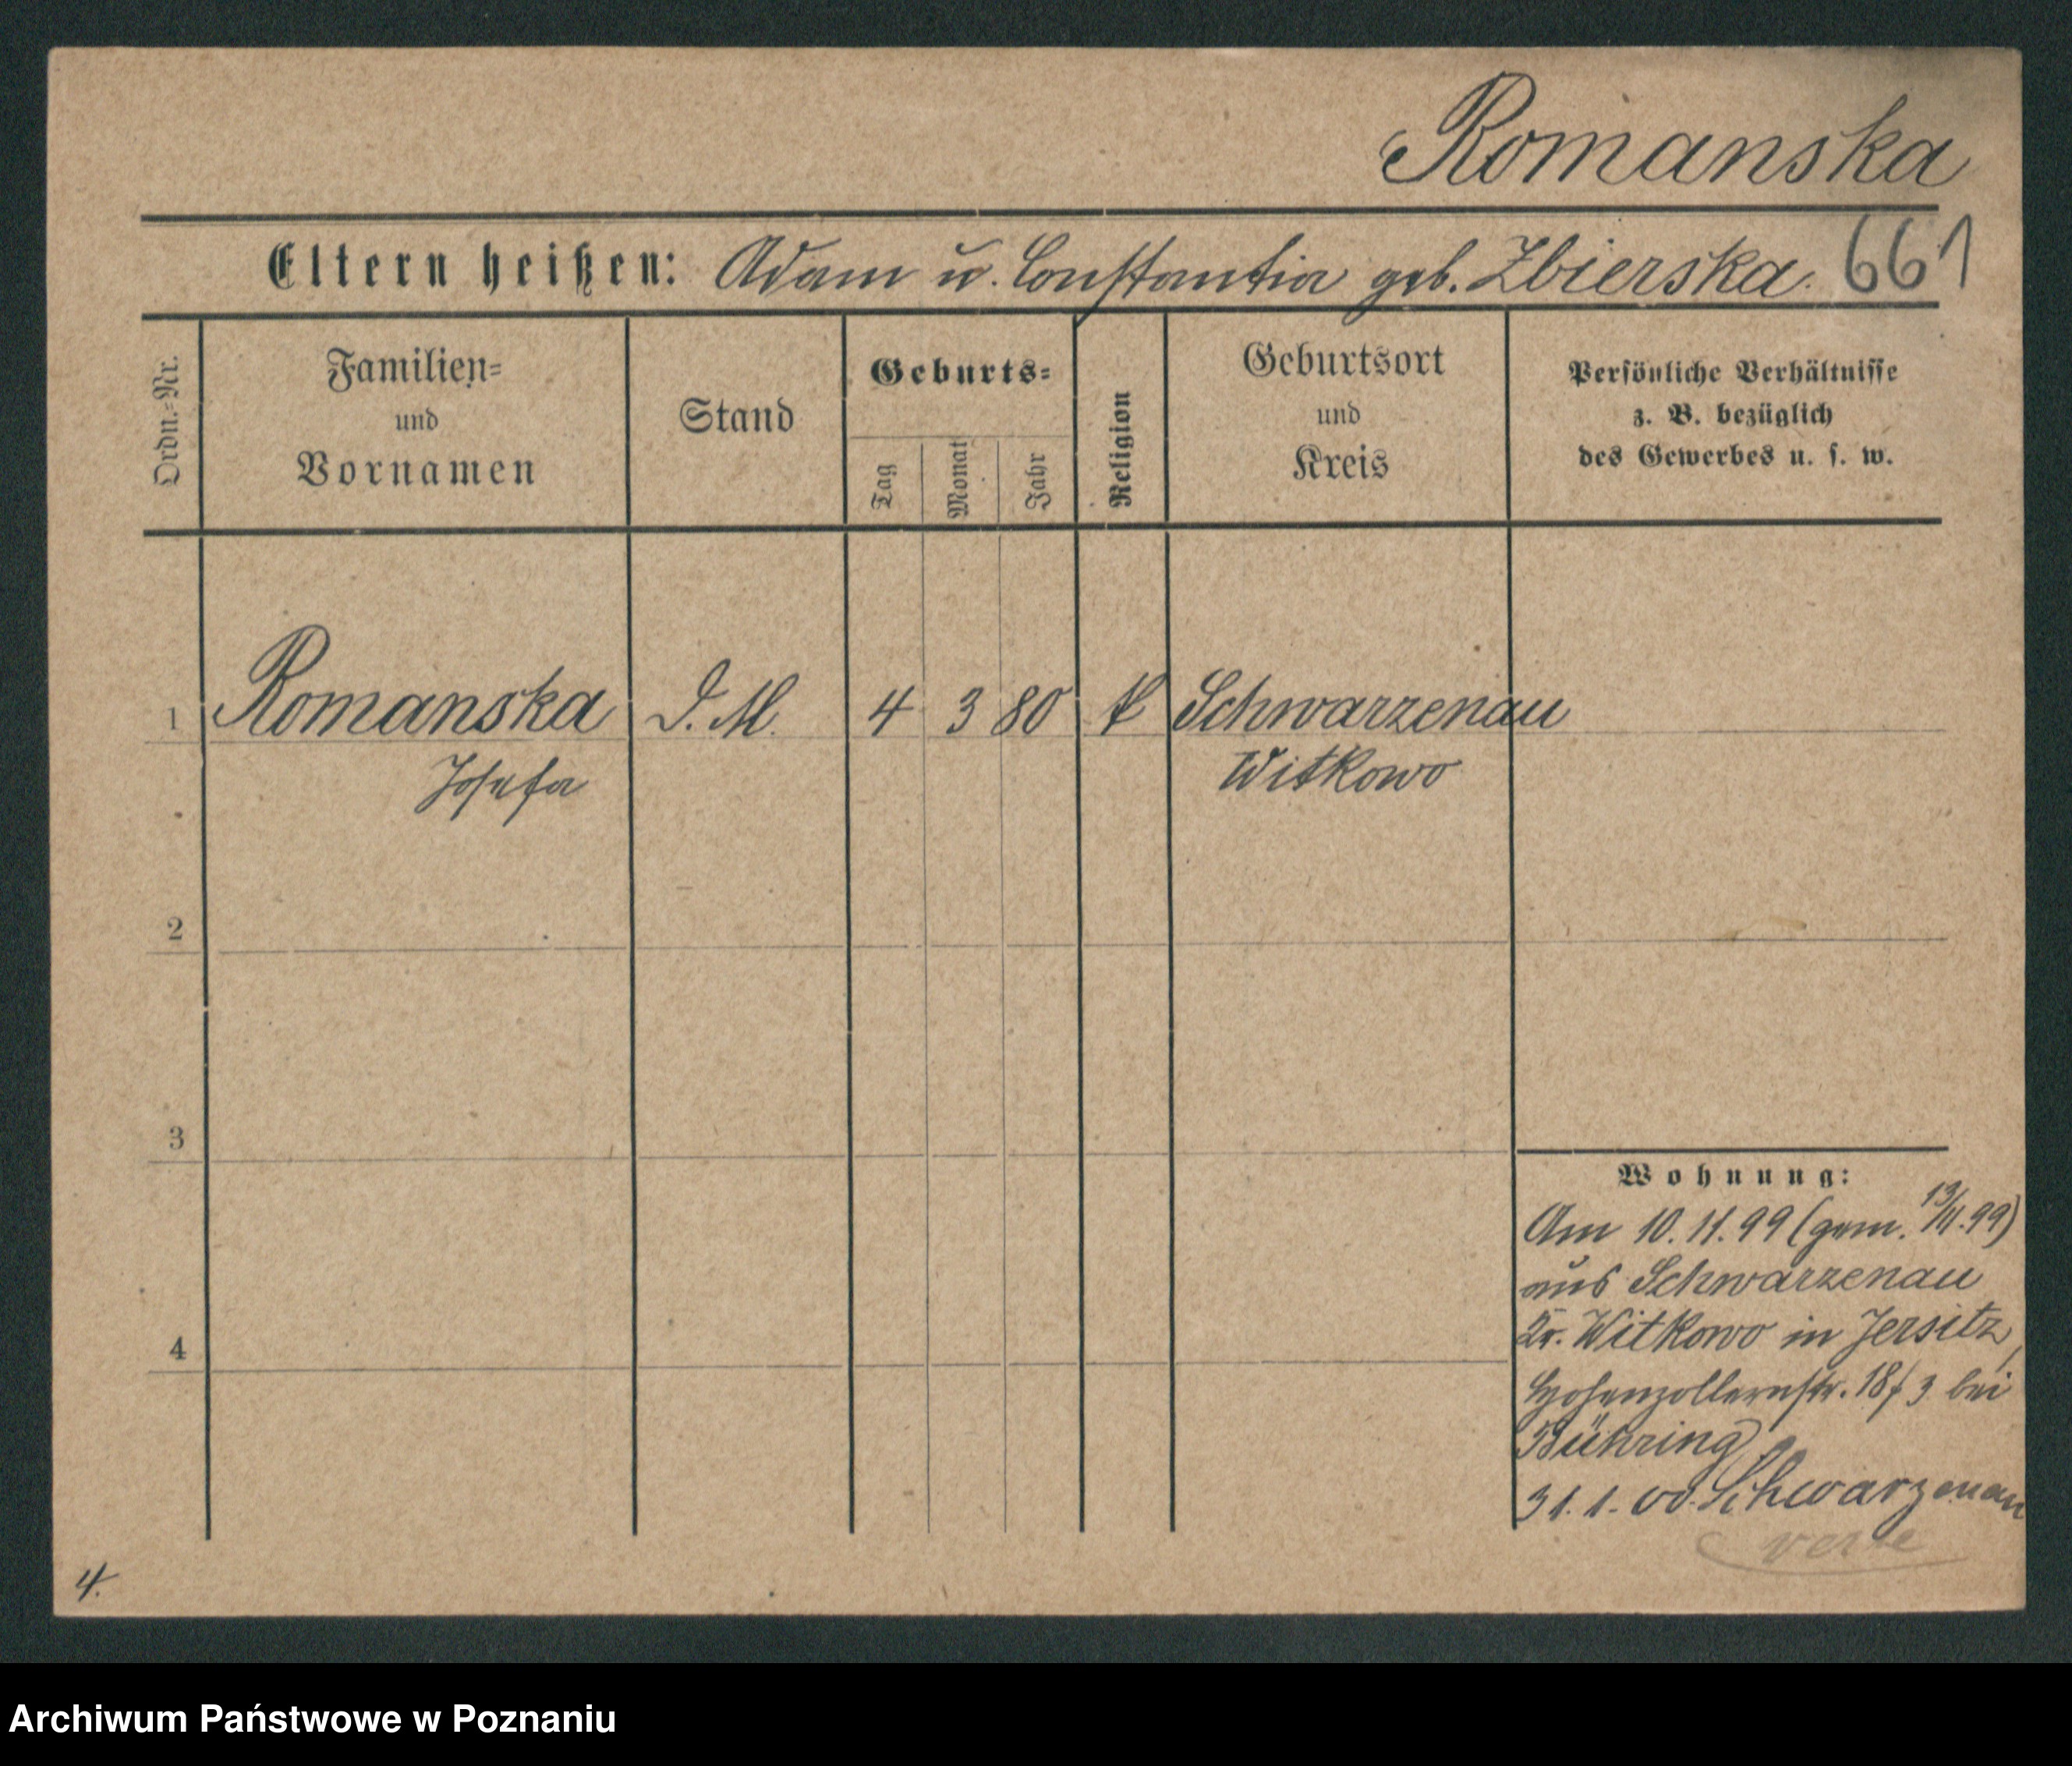 Romanska
Eltern heißen: Adam u. Constantia geb. Zbierska. 661
Ordn.-Nr.
Familien-
und
Vornamen
Stand
Geburts-
Tag
Monat
Jahr
Religion
Geburtsort
und
Kreis
Persönliche Verhältnisse
z. B. bezüglich
des Gewerbes u. s. w.
1 Romanska D. M. 4 3 80 k Schwarzenau
Josefa Witkowo
2
3
4
Wohnung:
Am 10.11.99 (gem. 13/11.99)
aus Schwarzenau
Kr. Witkowo in Jersitz,
Hohenzollernstr. 18 f 3 bei
Bühring
31.1.00. Schwarzenau
4.
Archiwum Państwowe w Poznaniu